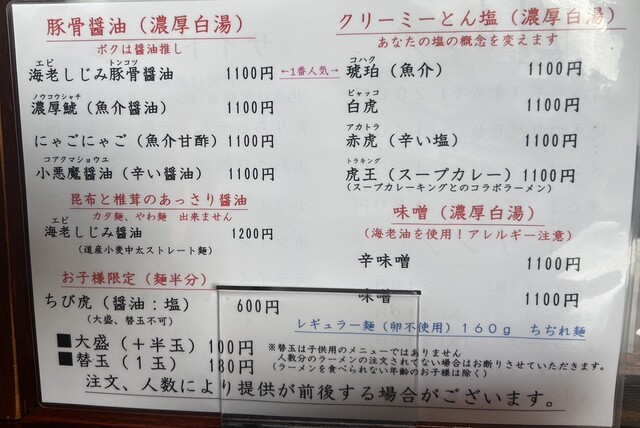 豚骨醤油（濃厚白湯）
ボクは醤油推し
エビ トンコツ
海老しじみ豚骨醤油 1100円 ←1番人気→
ノウコウシャチ
濃厚鯱（魚介醤油） 1100円
にゃごにゃご（魚介甘酢） 1100円
コアクマショウユ
小悪魔醤油（辛い醤油） 1100円
昆布と椎茸のあっさり醤油
カタ麺、やわ麺 出来ません
エビ
海老しじみ醤油 1200円
（道産小麦中太ストレート麺）
お子様限定（麺半分）
ちび虎（醤油：塩） 600円
（大盛、替玉不可）
■大盛（＋半玉）100円
■替玉（１玉） 180円
クリーミーとん塩（濃厚白湯）
あなたの塩の概念を変えます
コハク
琥珀（魚介） 1100円
ビャッコ
白虎 1100円
アカトラ
赤虎（辛い塩） 1100円
トラキング
虎王（スープカレー） 1100円
（スープカレーキングとのコラボラーメン）
味噌（濃厚白湯）
（海老油を使用！アレルギー注意）
辛味噌 1100円
味噌 1100円
レギュラー麺（卵不使用）１６０ｇ ちぢれ麺
※替玉は子供用のメニューではありません
人数分のラーメンの注文されてない場合はお断りさせていただきます。
（ラーメンを食べられない年齢のお子様は除く）
注文、人数により提供が前後する場合がございます。